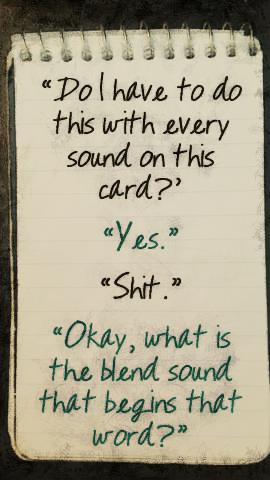 “Do I have to do
this with every
sound on this
card?’
“Yes.”
“Shit.”
“Okay, what is
the blend sound
that begins that
word?”